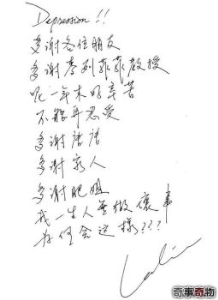 Depression!!
多谢各位朋友
多谢麦列菲菲教授
呢一年来好辛苦
不能再忍受
多谢唐唐
多谢家人
多谢肥姐
我一生人无做坏事
为何会这样???
Leslie
奇事奇物